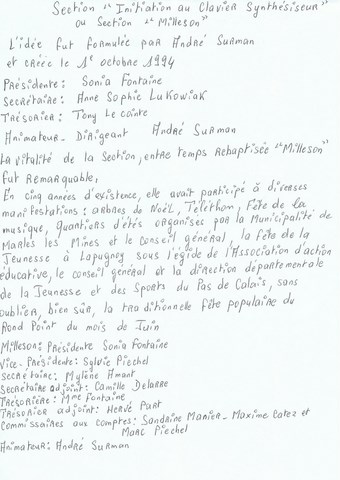 Section "Initiation au Clavier Synthésiseur"
ou Section "Milleson"
L'idée fut formulée par André Surman
et créée le 1e octobre 1994
Présidente: Sonia Fontaine
Secrétaire: Anne Sophie Lukowiak
Trésorier: Tony Le Cointe
Animateur - Dirigeant André Surman
La vitalité de la Section, entre temps Rebaptisée "Milleson"
fut Remarquable,
En cinq années d'existence, elle avait participé à diverses
manifestations: arbres de Noël, Téléthon, Fête de la
musique, quartiers d'étés organisés par la Municipalité de
Marles les Mines et le Conseil général, la fête de la
Jeunesse à Lapugnoy sous l'égide de l'Association d'action
éducative, le conseil général et la direction départementale
de la Jeunesse et des Sports du Pas de Calais, sans
oublier, bien sûr, la traditionnelle fête populaire du
Rond Point du mois de Juin
Milleson: Présidente Sonia Fontaine
Vice-Présidente: Sylvie Piechel
Secrétaire: Mylène Amant
Secrétaire adjoint: Camille Delarre
Trésorière: Mme Fontaine
Trésorier adjoint: Hervé Part
Commissaires aux comptes: Sandrine Manier - Maxime Catez et
Marc Piechel
Animateur: André Surman